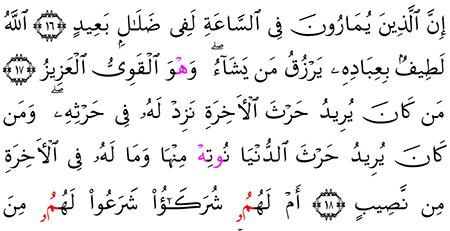 إِنَّ ٱلَّذِينَ يُمَارُونَ فِى ٱلسَّاعَةِ لَفِى ضَلَٰلِۭ بَعِيدٍ ١٦ ٱللَّهُ
لَطِيفُۢ بِعِبَادِهِۦ يَرْزُقُ مَن يَشَآءُۖ وَهْوَ ٱلْقَوِىُّ ٱلْعَزِيزُ ١٧
مَن كَانَ يُرِيدُ حَرْثَ ٱلْأَخِرَةِ نَزِدْ لَهُۥ فِى حَرْثِهِۦۖ وَمَن
كَانَ يُرِيدُ حَرْثَ ٱلدُّنْيَا نُوتِهْ مِنْهَا وَمَا لَهُۥ فِى ٱلْأَخِرَةِ
مِن نَّصِيبٍ ١٨ أَمْ لَهُمُۥ شُرَكَٰٓؤُاْ شَرَعُواْ لَهُمُۥ مِنَ